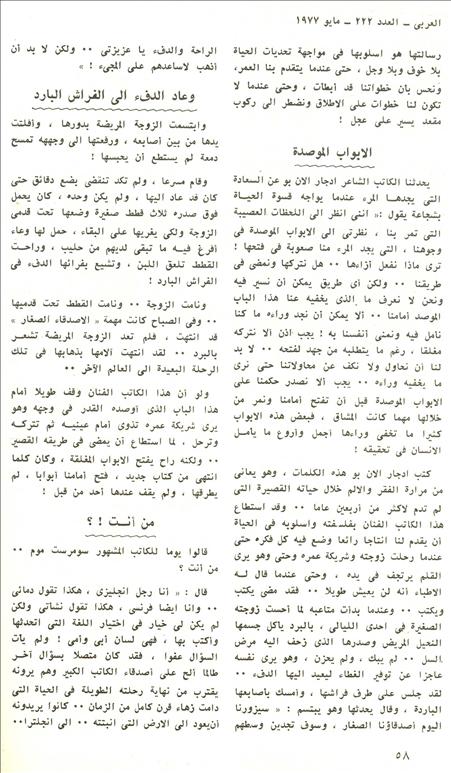 العربي - العدد ٢٢٢ - مايو ١٩٧٧
رسالتها هو اسلوبها في مواجهة تحديات الحياة
بلا خوف وبلا وجل ، حتى عندما يتقدم بنا العمر،
ونحس بأن خطواتنا قد أبطأت ، وحتى عندما لا
تكون لنا خطوات على الاطلاق ونضطر الى ركوب
مقعد يسير على عجل !
الابواب الموصدة
يحدثنا الكاتب الشاعر ادجار الان بو عن السعادة
التي يجدها المرء عندما يواجه قسوة الحياة
بشجاعة يقول :« انني انظر الى اللحظات العصيبة
التي تمر بنا ، نظرتي الى الابواب الموصدة في
وجوهنا ، التي يجد المرء منا صعوبة في فتحها !
ترى ماذا نفعل أزاءها ٠٠ هل نتركها ونمضي في
طريقنا ٠٠ ولكن أي طريق يمكن أن نسير فيه
ونحن لا نعرف ما الذي يخفيه عنا هذا الباب
الموصد أمامنا ٠٠ ألا يمكن أن نجد وراءه ما كنا
نأمل فيه ونمني أنفسنا به ! يجب اذن ألا نتركه
مغلقا ، رغم ما يتطلبه من جهد لفتحه ٠٠ لا بد
لنا أن نحاول ولا نكف عن محاولاتنا حتى نرى
ما يخفيه وراءه ٠٠ يجب ألا نصدر حكمنا على
الابواب الموصدة قبل أن تفتح أمامنا ونمر من
خلالها مهما كانت المشاق ، فبعض هذه الابواب
كثيرا ما تخفى وراءها أجمل وأروع ما يأمل
الانسان في تحقيقه !
كتب ادجار الان بو هذه الكلمات ، وهو يعاني
من مرارة الفقر والالم خلال حياته القصيرة التي
لم تدم لاكثر من أربعين عاما ٠٠ وقد استطاع
هذا الكاتب الفنان بفلسفته واسلوبه في الحياة
أن يقدم لنا انتاجا رائعا وضع فيه كل فكره حتى
عندما رحلت زوجته وشريكة عمره وحتى وهو يرى
القلم يرتجف في يده ، وحتى عندما قال له
الاطباء أنه لن يعيش طويلا ٠٠ فقد مضى يكتب
ويكتب ٠٠ وعندما بدأت متاعبه لما أحست زوجته
الصغيرة في احدى الليالي ، بالبرد يأكل جسمها
النحيل المريض وصدرها الذي زحف اليه مرض
السل ٠٠ لم يبك ، ولم يحزن ، وهو يرى نفسه
عاجزا عن توفير الغطاء ليعيد اليها الدفء ٠٠
لقد جلس على طرف فراشها ، وأمسك بأصابعها
الباردة ، وقال يحدثها وهو يبتسم : « سيزورنا
اليوم أصدقاؤنا الصغار ، وسوف تجدين وسطهم
الراحة والدفء يا عزيزتي ٠٠ ولكن لا بد أن
أذهب لاساعدهم على المجيء ! »
وعاد الدفء الى الفراش البارد
وابتسمت الزوجة المريضة بدورها ، وأفلتت
يدها من بين أصابعه ، ورفعتها الى وجهه تمسح
دمعة لم يستطع أن يحبسها !
وقام مسرعا ، ولم تكد تنقضي بضع دقائق حتى
كان قد عاد اليها ، ولم يكن وحده ، كان يحمل
فوق صدره ثلاث قطط صغيرة وضعها تحت قدمي
الزوجة ولكي يغريها على البقاء ، حمل لها وعاء
أفرغ فيه ما تبقى لديهم من حليب ، وراحت
القطط تلعق اللبن ، وتشيع بفرائها الدفء في
الفراش البارد !
ونامت الزوجة ٠٠ ونامت القطط تحت قدميها
٠٠ وفي الصباح كانت مهمة « الاصدقاء الصغار »
قد انتهت ، فلم تعد الزوجة المريضة تشعر
بالبرد ٠٠ لقد انتهت آلامها بذهابها في تلك
الرحلة البعيدة الى العالم الآخر ٠٠
ولو أن هذا الكاتب الفنان وقف طويلا أمام
هذا الباب الذي أوصده القدر في وجهه وهو
يرى شريكة عمره تذوي أمام عينيه ثم تتركه
وترحل ، لما استطاع أن يمضي في طريقه القصير
٠٠ ولكنه راح يفتح الابواب المغلقة ، وكان كلما
انتهى من كتاب جديد ، فتح أمامنا أبوابا ، لم
يطرقها ، ولم يقف عندها أحد من قبل !
من أنت ! ؟
قالوا يوما للكاتب المشهور سومرست موم ٠٠
من أنت ؟
قال : « أنا رجل انجليزي ، هكذا تقول دمائي
٠٠ وأنا ايضا فرنسي ، هكذا تقول نشأتي ولكن
لم يكن لي خيار في اختيار اللغة التي أتحدثها
وأكتب بها ، فهي لسان أبي وأمي ! ولم يأت
السؤال عفوا ، فقد كان متصلا بسؤال آخر
طالما ألح على أصدقاء الكاتب الكبير وهم يرونه
يقترب من نهاية رحلته الطويلة في الحياة التي
دامت زهاء قرن كامل من الزمان ٠٠ كانوا يريدونه
أن يعود الى الارض التي انبتته ٠٠ الى انجلترا٠٠
٥٨